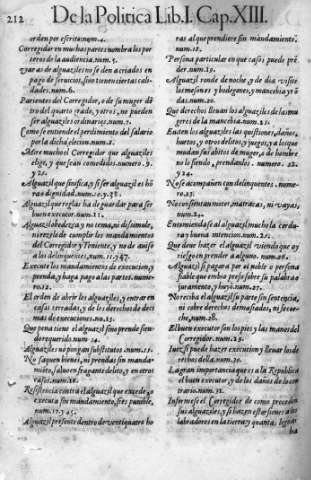 212 De la Politica Lib. I. Cap. XIII.
orden por escrito num. 4.
Corregidor en muchas partes nombra los por
teros de la audiencia. num. 5.
Varas de alguaziles no se den a criados en
pago de seruicios, sino tienen ciertas cali-
dades. num. 6.
Parientes del Corregidor, o de su muger dé
tro del quarto grado, y otros, no pueden
ser alguaziles ordinarios. num. 7.
Como se entiende el perdimiento del salario
por la dicha election. num. 8.
Mire mucho el Corregidor que alguaziles
elige, y que sean comedidos. numero. 9.
y 21.
Alguazil que significa, y si ser alguazil es hó
ra o dignidad. num.
Alguazil que reglas ha de guardar para ser
buen executor. num. 11.
Alguazil obedezca y no tema, ni dissimule,
ni rezele de cumplir los mandamientos
del Corregidor y Teniente, y no de auiso
a los delinquentes, num. 11. y 47.
Execute los mandamientos de execucion, y
prenda, y haga pago a las partes. nume-
ro. 12.
El orden de abrir los alguaziles, y entrar en
casas cerradas, y de los derechos de deci
mas de execuciones. no. 13.
Que pena tiene el alguazil si no prende sien-
do requerido. num. 14.
Alguaziles no pongan substitutos. num. 15.
No saquen bienes, ni prendas sin manda-
miéto, saluo en fragante delito, y en otros
casos. num. 16.
Resistencia contra el alguazil que excede, o
executa sin mandamiento, si es punible,
num. 17. y 45.
Alguazil presente dentro de veintiquatro ho
ras al que prendiere sin mandamiento.
num. 18.
Persona particular en que casos puede pré
der. num. 19.
Alguazil ronde de noche, y de dia visite
los mesones y bodegones, y mancebia y rō
das. num. 20.
Que derechos lleuan los alguaziles de las mu
geres de la mancebia. num. 21.
Euiten los alguaziles las questiones, daños,
hurtos, y otros delitos, y juegos, y a los que
mudan sus abitos de muger, o de hombre
no lo siendo, prendanlos. numero. 22.
y 24.
No se acompañen con delinquentes. nume-
ro. 23.
No consientan mirar, matracas, ni vayas,
num. 24.
Encomiendase al alguazil mucho la cordu-
ra y buena intencion. num. 25.
Que deue hazer el alguazil viendo que ay
riesgo en prender a alguno. num. 26.
Alguazil si pagara por el noble o persona
fiable que embio preso sobre su palabra o
juramento, y huyó. num. 27.
No reciba el alguazil su parte sin sentencia,
ni cobre derechos demasiados, ni se coe-
che, num. 28.
El buen executor son los pies y las manos del
Corregidor. num. 29.
Iuez si puede hazer execution y lleuar los de
rechos della. num. 30.
La gran importancia que es a la Republica
el buen executor, y de los daños de lo con-
trario. num. 31.
Informese el Corregidor de como proceden
sus alguaziles, y si hazen estorsiones a los
labradores en la tierra, y quanta